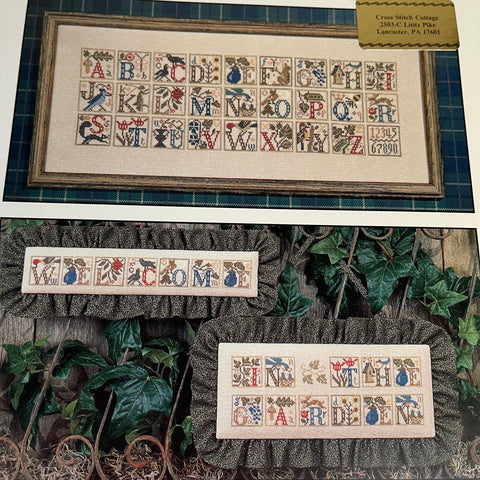 Cross Stitch Cottage
2503-C Lititz Pike
Lancaster, PA 17601
A B C D E F G H I
J K L M N O P Q R
S T U V W X Y Z 12345
67890
WELCOME
IN THE
GARDEN